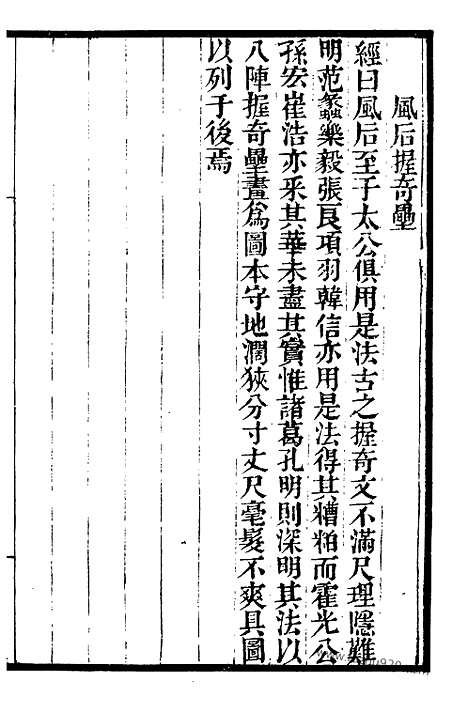 風后握奇壘
經曰風后至于太公俱用是法古之握奇文不滿尺理隱難
明范蠡樂毅張良項羽韓信亦用是法得其糟粕而霍光公
孫安崔浩亦采其華未盡其實惟諸葛孔明則深明其法以
八陣握奇壘畫爲圖本守地濶狹分寸丈尺毫髮不爽具圖
以列于後焉